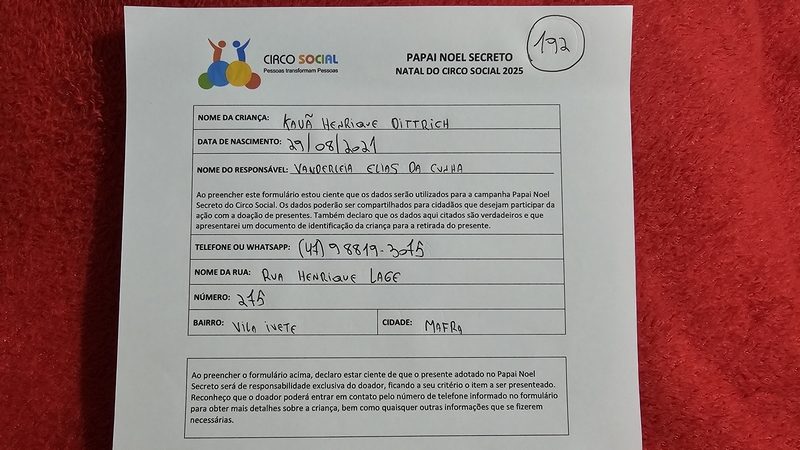 CIRCO SOCIAL
Pessoas transformam Pessoas
PAPAI NOEL SECRETO
NATAL DO CIRCO SOCIAL 2025
192
NOME DA CRIANÇA: KAUÃ HENRIQUE DITTRICH
DATA DE NASCIMENTO: 29/08/2021
NOME DO RESPONSÁVEL: VANDERLEIA ELIAS DA CUNHA
Ao preencher este formulário estou ciente que os dados serão utilizados para a campanha Papai Noel
Secreto do Circo Social. Os dados poderão ser compartilhados para cidadãos que desejam participar da
ação com a doação de presentes. Também declaro que os dados aqui citados são verdadeiros e que
apresentarei um documento de identificação da criança para a retirada do presente.
TELEFONE OU WHATSAPP: (47) 98819-3075
NOME DA RUA: RUA HENRIQUE LAGE
NÚMERO: 275
BAIRRO: VILA IVETE CIDADE: MAFRA
Ao preencher o formulário acima, declaro estar ciente de que o presente adotado no Papai Noel
Secreto será de responsabilidade exclusiva do doador, ficando a seu critério o item a ser presenteado.
Reconheço que o doador poderá entrar em contato pelo número de telefone informado no formulário
para obter mais detalhes sobre a criança, bem como quaisquer outras informações que se fizerem
necessárias.